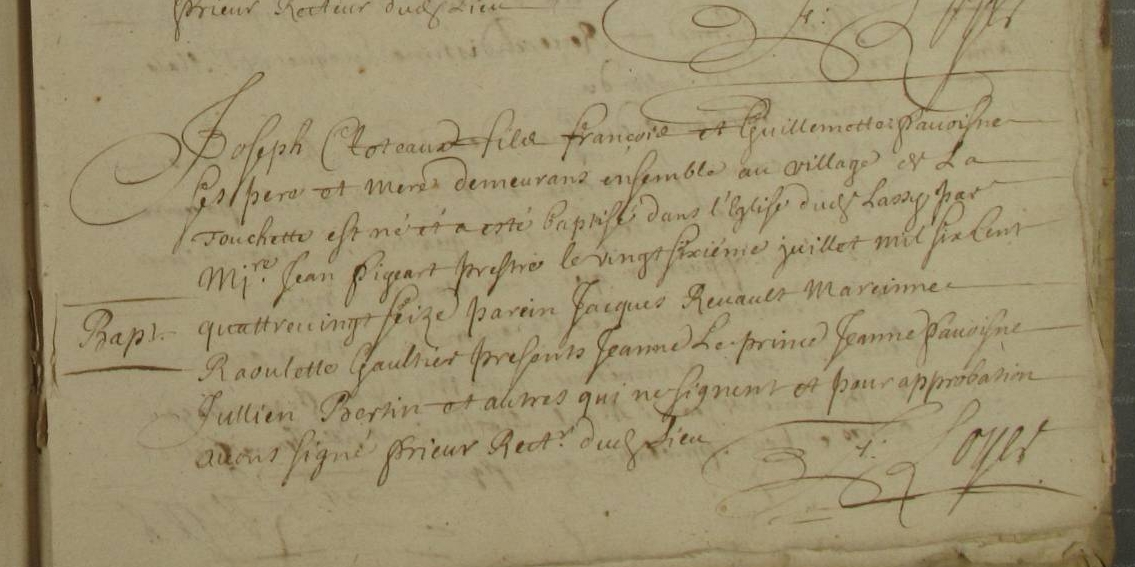 prieur Recteur dud Lieu
f: Loyer
Joseph Cloteaux fils françois et Guillemette pavoisne
ses pere et mere demeurans ensemble au village de La
Touchette est né et a esté baptisé dans l'Eglise dud Lassy par
Mire Jean pigeart prestre le vingt sixiéme juillet mil six Cent
quattrevingt seize parein Jacques Revault Mareinne
Bapt.
Raoulette Gaultier presents Jeanne Le prince Jeanne pavoisne
Jullien Bertin et autres qui ne signent et pour approbation
avons signé prieur Rectr dud Lieu
f. Loyer